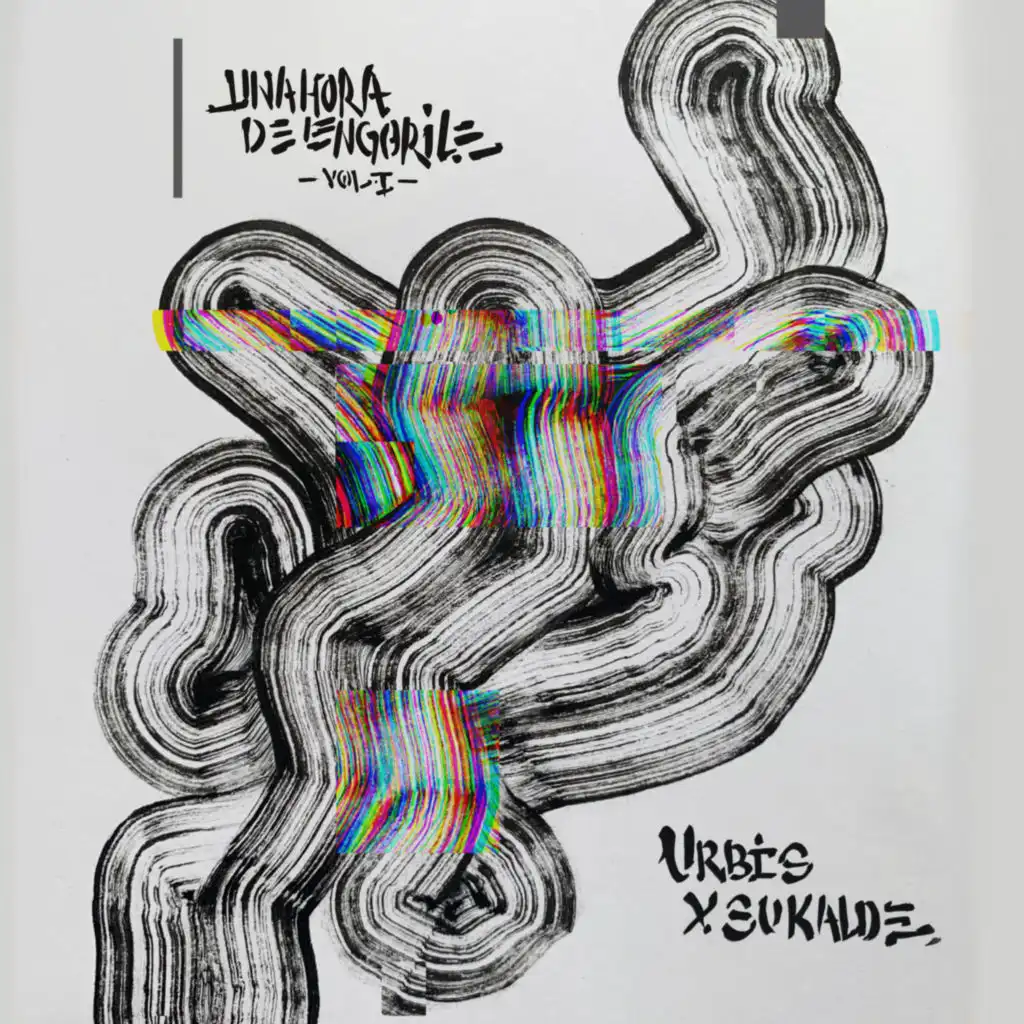 UNA HORA
DE LENGORILE
-VOL.I-
URBIS
X SUKALDE